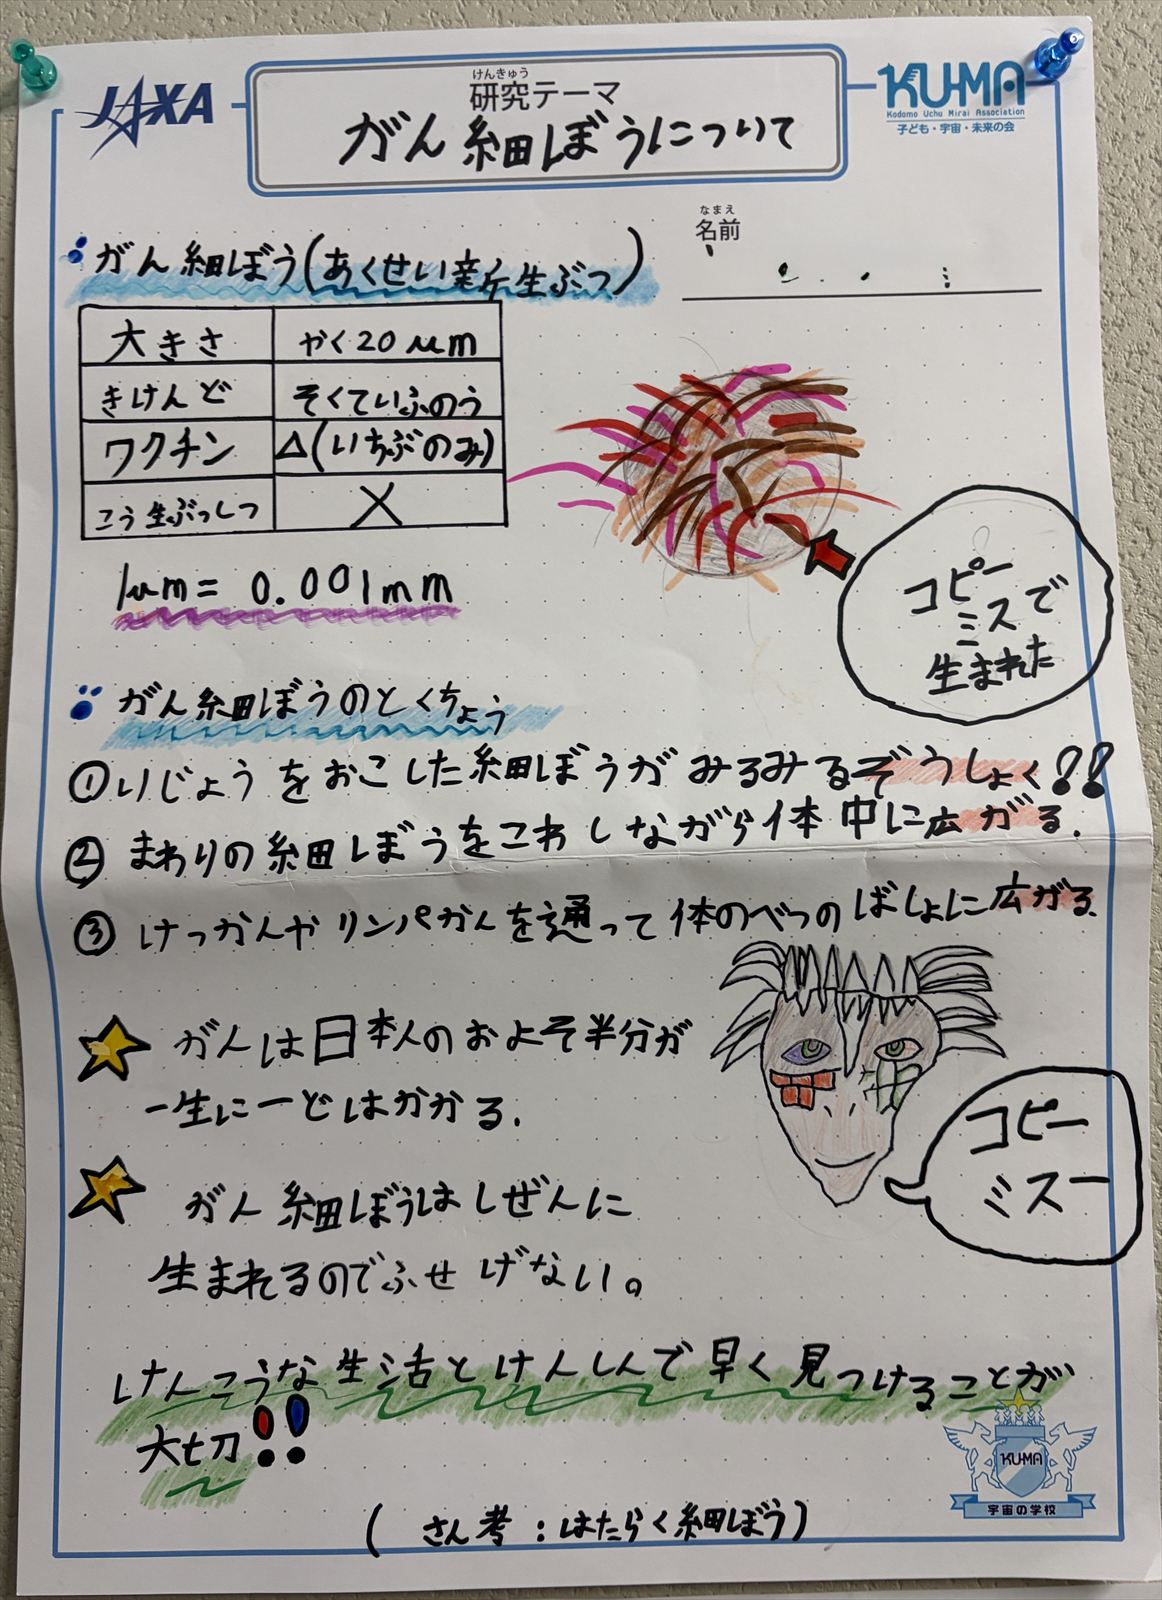 JAXA
けんきゅう
研究テーマ
がん細ぼうについて
KU-MA
Kodomo Uchu Mirai Association
子ども・宇宙・未来の会
なまえ
名前
がん細ぼう(あくせい新生ぶつ)
大きさ やく20μm
きけんど そくていふのう
ワクチン △(いちぶのみ)
こう生ぶっしつ ×
1μm=0.001mm
コピー
ミスで
生まれた
がん細ぼうのとくちょう
①いじょうをおこした細ぼうがみるみるぞうしょく!!
②まわりの細ぼうをこわしながら体中に広がる.
③けっかんやリンパかんを通って体のべつのばしょに広がる.
がんは日本人のおよそ半分が
一生に一どはかかる.
コピー
ミスー
がん細ぼうはしぜんに
生まれるのでふせげない。
けんこうな生活とけんしんで早く見つけることが
大切!!
KU-MA
宇宙の学校
(さん考:はたらく細ぼう)